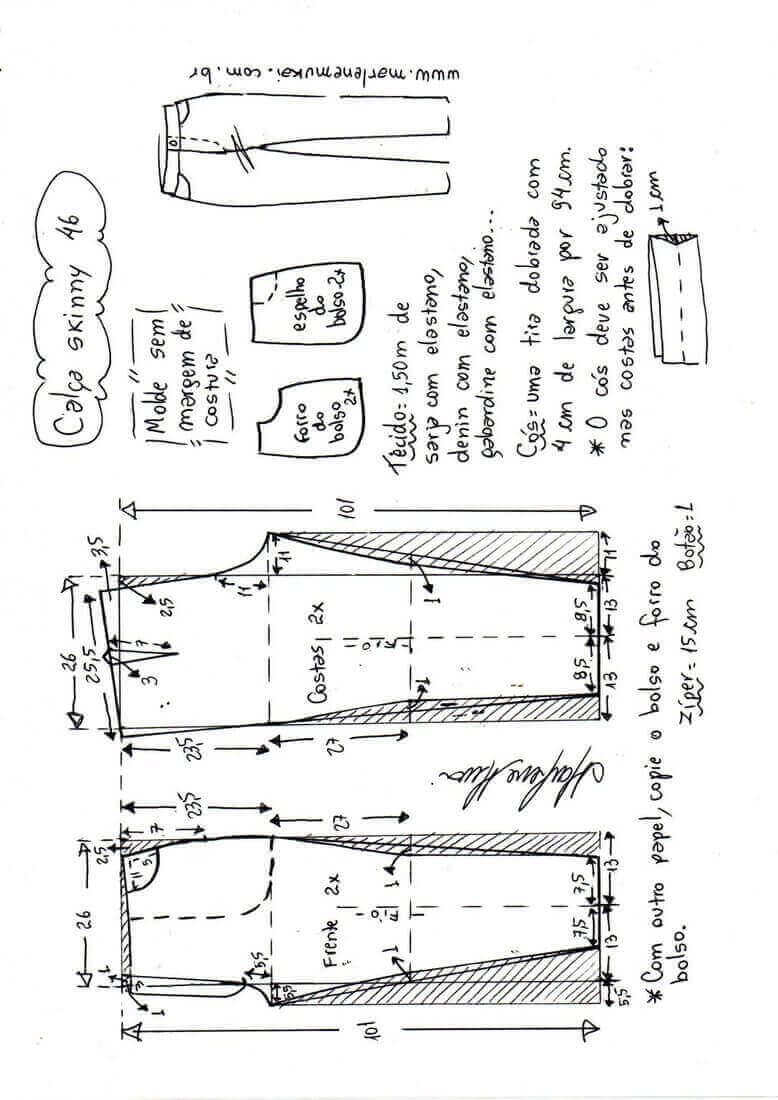 Calça skinny 46
Molde sem
margem de
costura
www.marlenemukai.com.br
forro
do
bolso
2x
espelho
do
bolso-2x
Tecido= 1,50m de
sarja com elastano,
denin com elastano,
gabardine com elastano...
Cós= uma tira dobrada com
4 cm de largura por 94 cm.
* O cós deve ser ajustado
nas costas antes de dobrar:
1cm
101
3,5
26
25,5
2,5
7
3
11
11
Costas 2x
1
1
23,5
27
8,5
8,5
11
13
13
23,5
27
2,5
7
11
5
26
Frente 2x
1
1
1
3
1
5,5
5,5
7,5
7,5
13
13
5,5
101
* Com outro papel, copie o bolso e forro do
bolso.
Zíper= 15cm Botão= 1